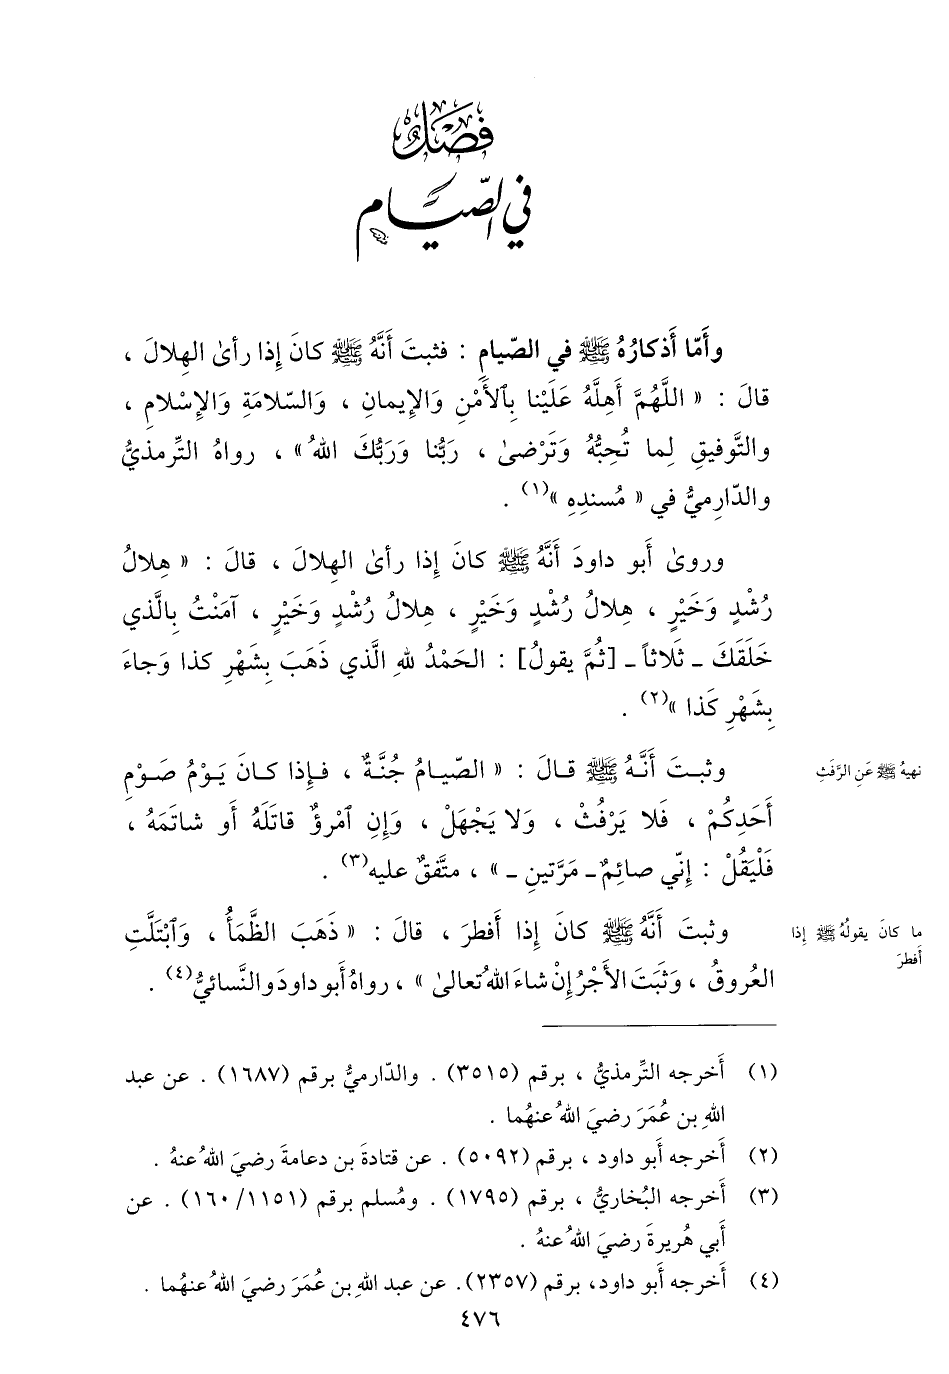 فصل
في الصّيام
وأَمّا أَذكارُهُ ﷺ في الصّيامِ : فثبتَ أَنَّهُ ﷺ كانَ إِذا رأىٰ الهِلالَ ،
قالَ : « اللَّهُمَّ أَهِلَّهُ عَلَيْنا بِٱلأَمْنِ وَالإِيمانِ ، وَالسّلامَةِ وَالإِسْلامِ ،
والتَّوفيقِ لِما تُحِبُّهُ وَتَرْضىٰ ، رَبُّنا وَرَبُّكَ اللهُ » ، رواهُ التِّرمذيُّ
والدّارِميُّ في « مُسندِهِ »(١) .
وروىٰ أَبو داودَ أَنَّهُ ﷺ كانَ إِذا رأىٰ الهِلالَ ، قالَ : « هِلالُ
رُشْدٍ وَخَيْرٍ ، هِلالُ رُشْدٍ وَخَيْرٍ ، هِلالُ رُشْدٍ وَخَيْرٍ ، آمَنْتُ بِالَّذي
خَلَقَكَ ـ ثَلاثاً ـ [ثُمَّ يقولُ] : الحَمْدُ للهِ الَّذي ذَهَبَ بِشَهْرِ كذا وَجاءَ
بِشَهْرِ كَذا »(٢) .
وثبـتَ أَنَّـهُ ﷺ قـالَ : « الصّيـامُ جُنَّـةٌ ، فـإِذا كـانَ يَـوْمُ صَـوْمِ
أَحَدِكُمْ ، فَلا يَرْفُثْ ، وَلا يَجْهَلْ ، وَإِنِ ٱمْرؤٌ قاتَلَهُ أَو شاتَمَهُ ،
فَلْيَقُلْ : إِنّي صائِمٌ ـ مَرَّتينِ ـ » ، متَّفقٌ عليه(٣) .
نهيهُ ﷺ عَنِ الرَّفَثِ
وثبتَ أَنَّهُ ﷺ كانَ إِذا أَفطرَ ، قالَ : « ذَهَبَ الظَّمَأُ ، وَٱبْتَلَّتِ
العُروقُ ، وَثَبَتَ الأَجْرُ إِنْ شاءَ اللهُ تعالىٰ » ، رواهُ أَبو داودَ والنَّسائيُّ(٤) .
ما كانَ يقولُهُ ﷺ إِذا
أَفطرَ
(١) أَخرجه التِّرمذيُّ ، برقم (٣٥١٥) . والدّارميُّ برقم (١٦٨٧) . عن عبد
اللهِ بن عُمَرَ رضيَ اللهُ عنهُما .
(٢) أَخرجه أَبو داود ، برقم (٥٠٩٢) . عن قتادةَ بن دعامةَ رضيَ اللهُ عنهُ .
(٣) أَخرجه البُخاريُّ ، برقم (١٧٩٥) . ومُسلم برقم (١١٥١/ ١٦٠) . عن
أَبي هُريرةَ رضيَ اللهُ عنهُ .
(٤) أَخرجه أَبو داود، برقم (٢٣٥٧). عن عبد اللهِ بن عُمَرَ رضيَ اللهُ عنهُما .
٤٧٦